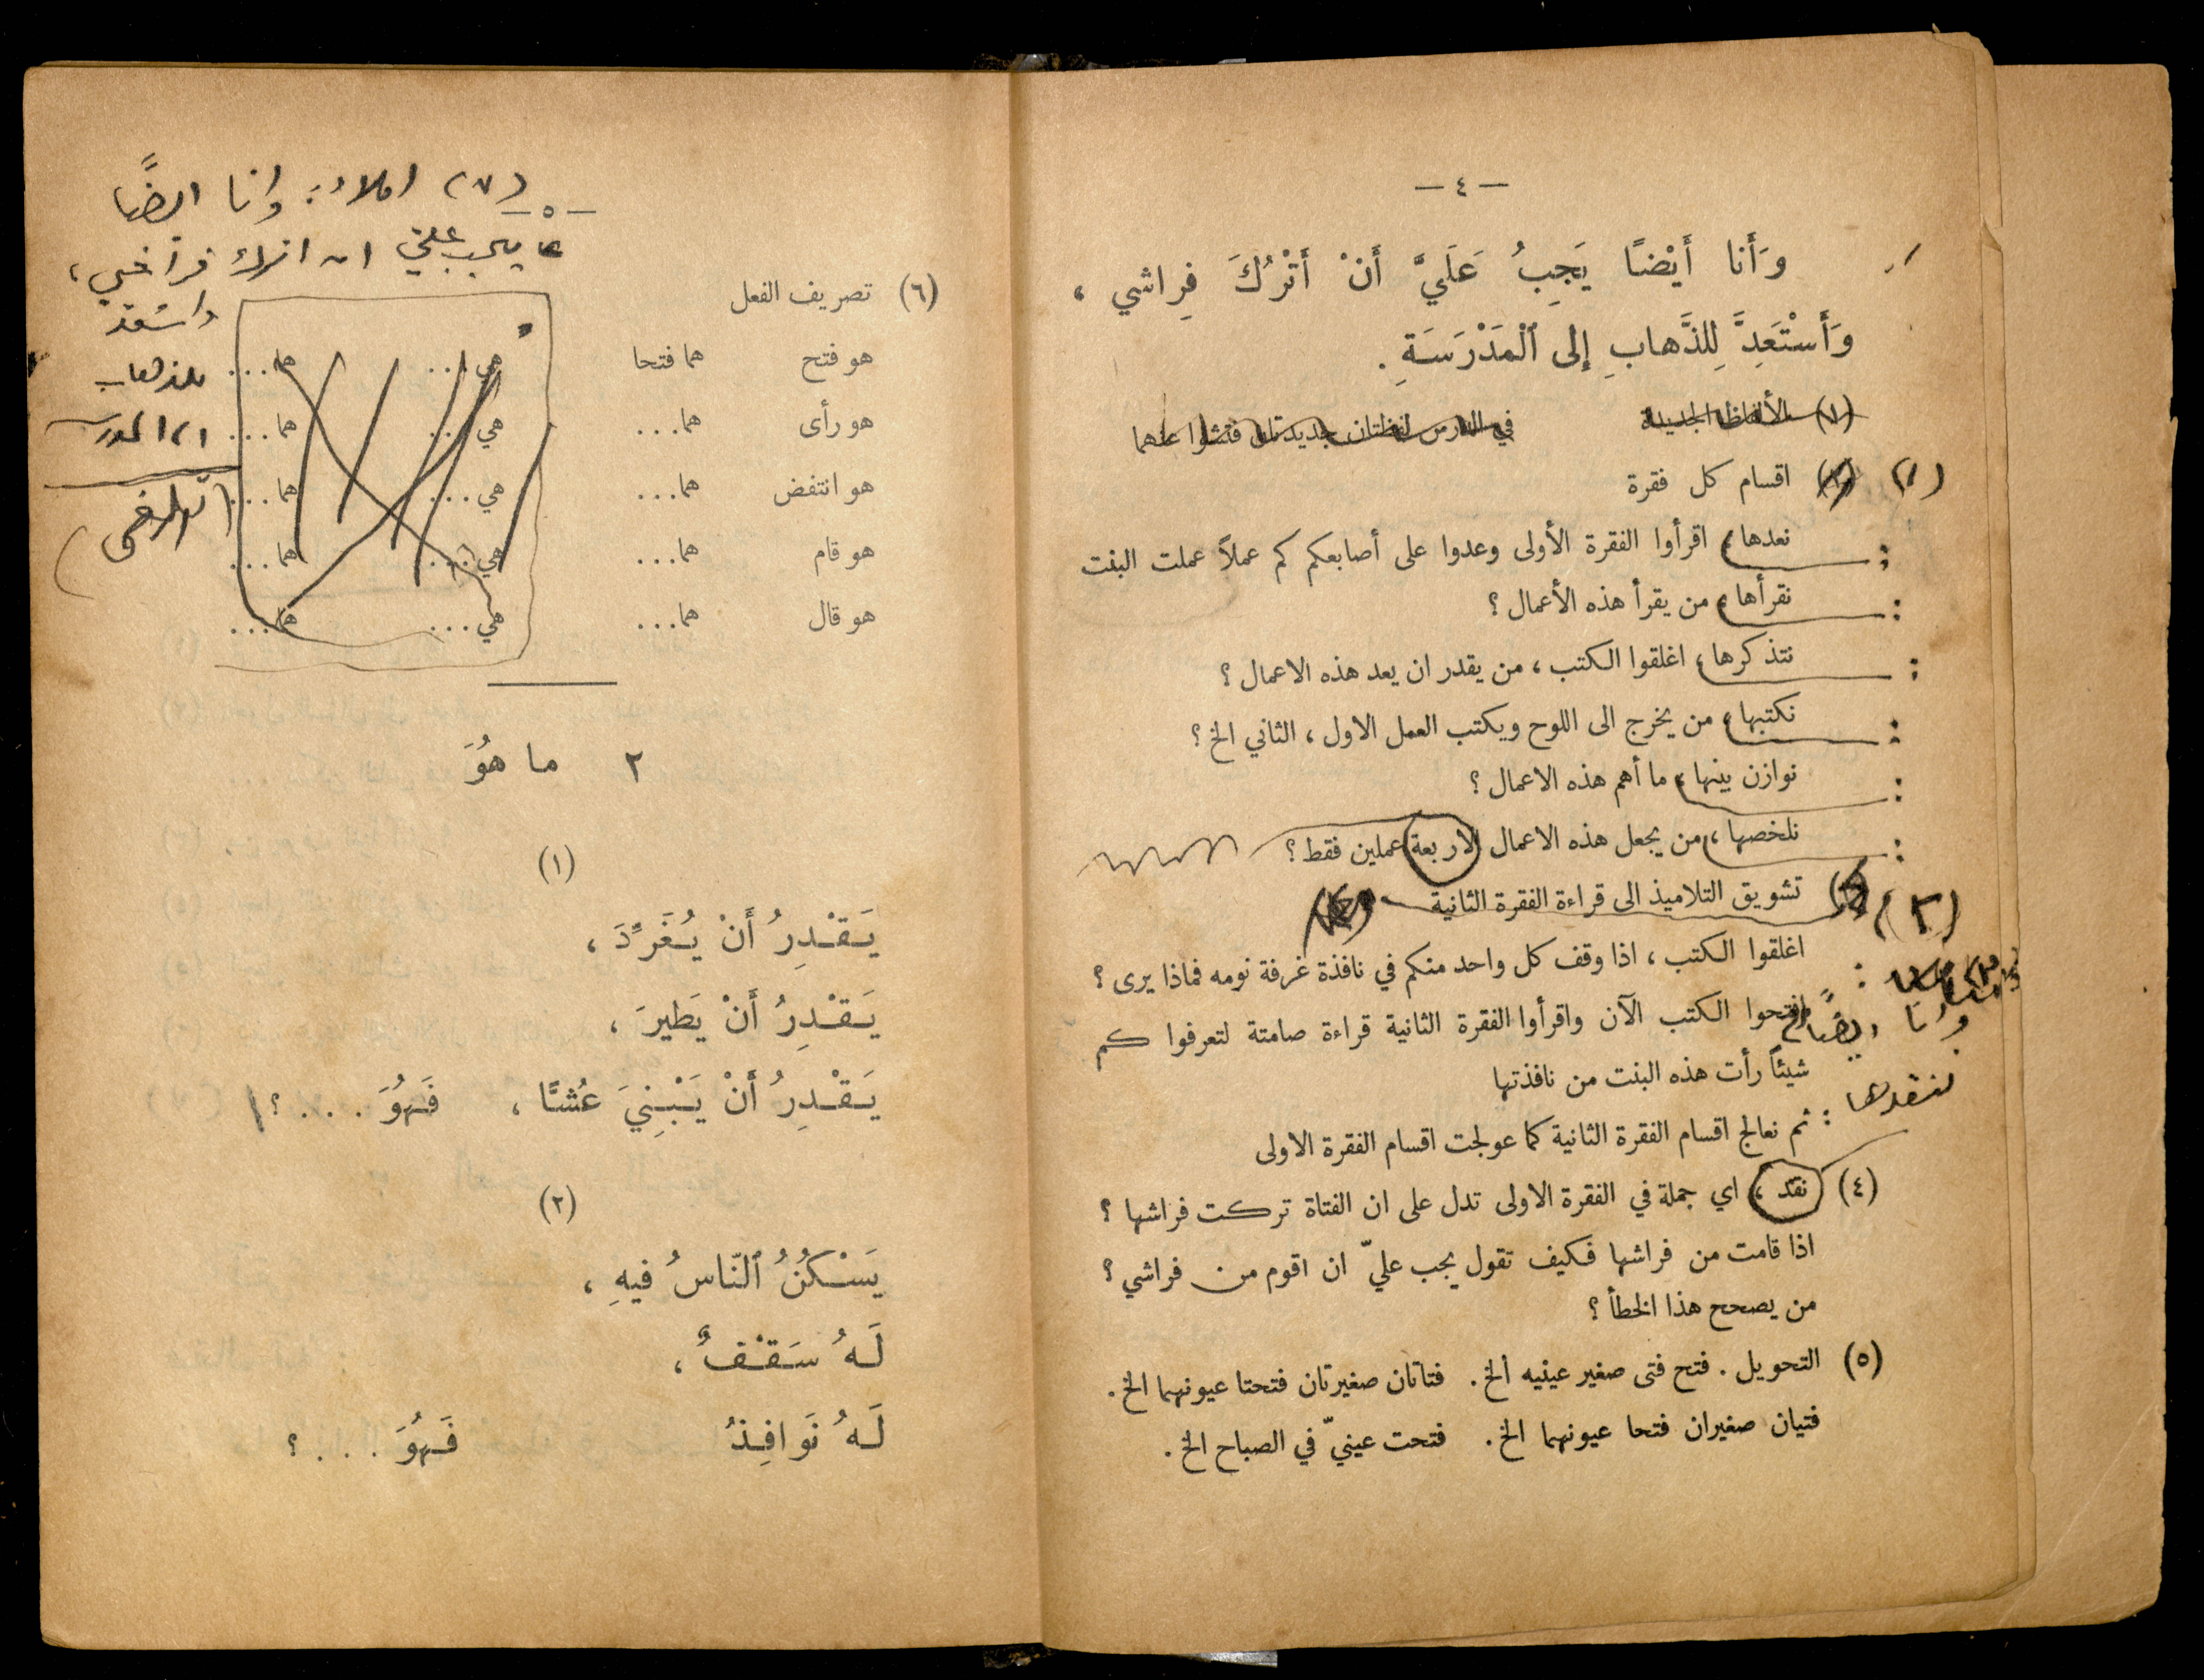 — ٤ —
وَأَنا أَيْضًا يَجِبُ عَلَيَّ أَنْ أَتْرُكَ فِراشي ،
وَأَسْتَعِدَّ لِلذَّهابِ إِلى ٱلْمَدْرَسَةِ .
(١) الألفاظ الجديدة في الدرس لفظتان جديدتان فتشوا عنهما
(١) اقسام كل فقرة
: نعدها ، اقرأوا الفقرة الأولى وعدوا على أصابعكم كم عملاً عملت البنت
: نقرأها ، من يقرأ هذه الأعمال ؟
: نتذكرها ، اغلقوا الكتب ، من يقدر ان يعد هذه الاعمال ؟
: نكتبها ، من يخرج الى اللوح ويكتب العمل الاول ، الثاني الخ ؟
: نوازن بينها ، ما أهم هذه الاعمال ؟
: نلخصها ، من يجعل هذه الاعمال الاربعة عملين فقط ؟
(٢) تشويق التلاميذ الى قراءة الفقرة الثانية
اغلقوا الكتب ، اذا وقف كل واحد منكم في نافذة غرفة نومه فماذا يرى ؟
وانا ايضًا
افتحوا الكتب الآن واقرأوا الفقرة الثانية قراءة صامتة لتعرفوا كم
شيئاً رأت هذه البنت من نافذتها
ننقدها :
ثم نعالج اقسام الفقرة الثانية كما عولجت اقسام الفقرة الاولى
(٤) نقد ، اي جملة في الفقرة الاولى تدل على ان الفتاة تركت فراشها ؟
اذا قامت من فراشها فكيف تقول يجب عليّ ان اقوم من فراشي ؟
من يصحح هذا الخطأ ؟
(٥) التحويل . فتح فتى صغير عينيه الخ . فتاتان صغيرتان فتحتا عيونهما الخ .
فتيان صغيران فتحا عيونهما الخ . فتحت عينيّ في الصباح الخ .
— ٥ —
(٧) املاء : وانا ايضًا
يجب علي ان اترك فراشي ،
واستعد
للذهاب
الى المدرسة
(٦) تصريف الفعل
هو فتح هما فتحا هي ... هما ...
هو رأى هما ... هي ... هما ...
هو انتفض هما ... هي ... هما ...
هو قام هما ... هي ... هما ...
هو قال هما ... هي ... هما ...
٢ ما هُوَ
(١)
يَقْدِرُ أَنْ يُغَرِّدَ ،
يَقْدِرُ أَنْ يَطيرَ ،
يَقْدِرُ أَنْ يَبْنِيَ عُشًّا ، فَهُوَ . . . ؟
(٢)
يَسْكُنُ ٱلنّاسُ فيهِ ،
لَهُ سَقْفٌ ،
لَهُ نَوافِذُ فَهُوَ . . . ؟